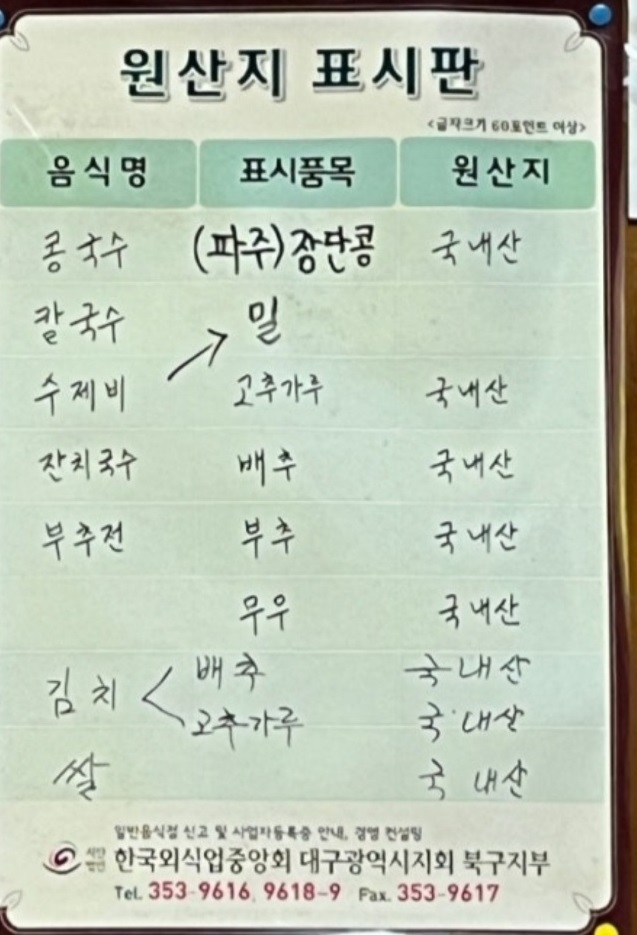 원산지 표시판
<글자크기 60포인트 이상>
음식명 표시품목 원산지
콩국수 (파주)장단콩 국내산
칼국수 밀
수제비 고추가루 국내산
잔치국수 배추 국내산
부추전 부추 국내산
무우 국내산
배추 국내산
김치
고추가루 국내산
쌀 국내산
일반음식점 신고 및 사업자등록증 안내, 경영 컨설팅
사단법인 한국외식업중앙회 대구광역시지회 북구지부
Tel. 353-9616, 9618~9 Fax. 353-9617